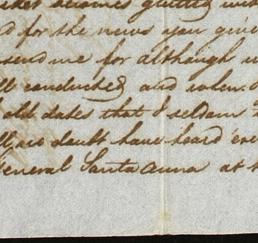 becomes glutted with
for the news you give
send me for although
conducted and when
old dates that I seldom
no doubt have heard
General Santa anna at